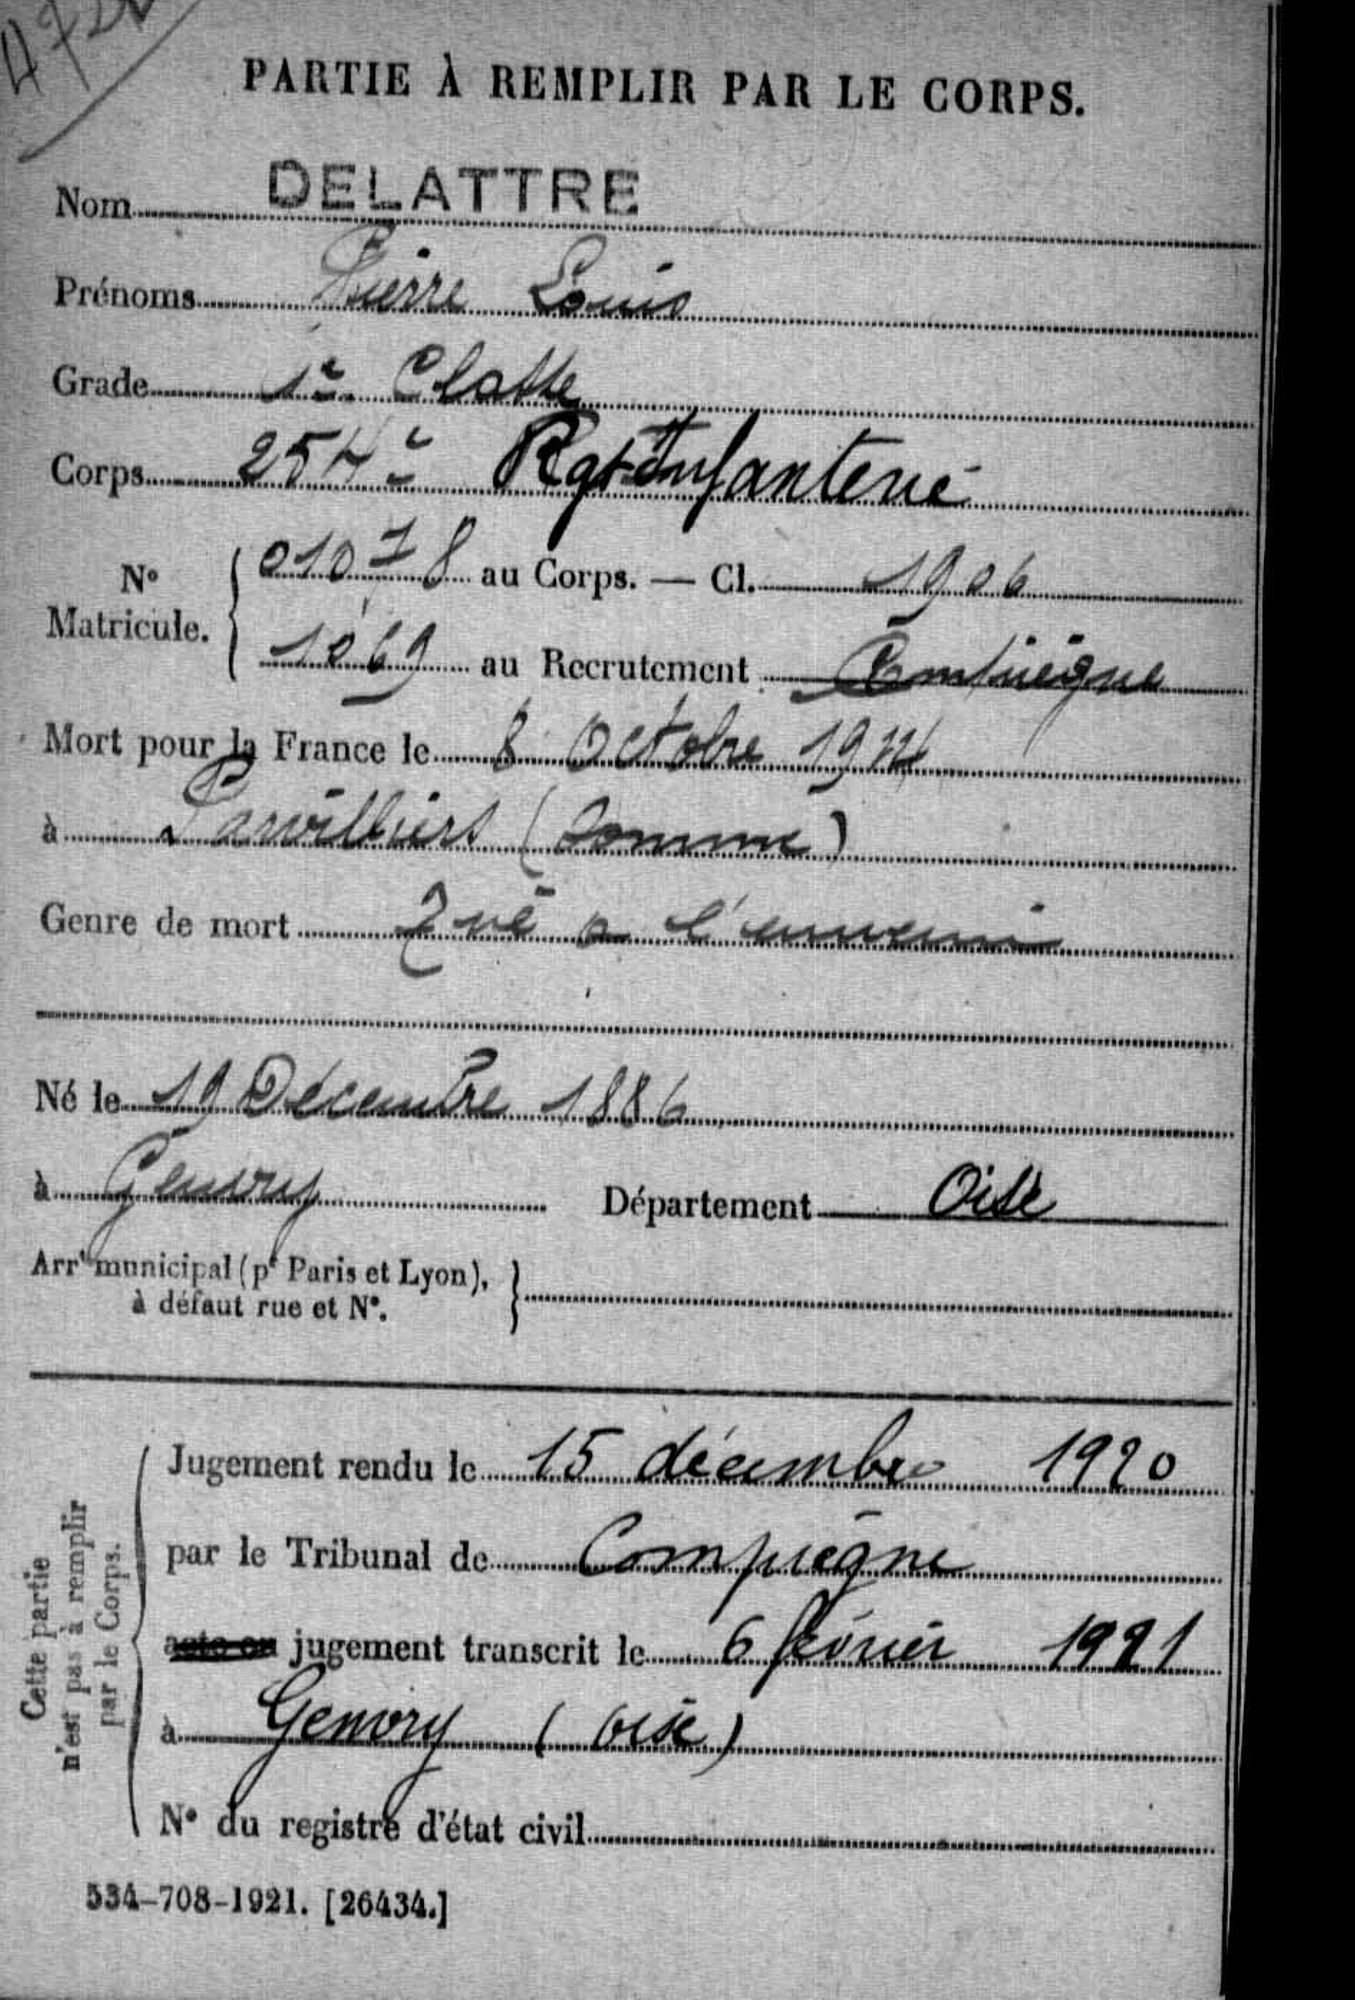 PARTIE À REMPLIR PAR LE CORPS.
Nom DELATTRE
Prénoms Pierre Louis
Grade 1e Classe
Corps 254e Rgt Infanterie
N° Matricule. { 01078 au Corps. — Cl. 1906
1069 au Recrutement Compiègne
Mort pour la France le 8 Octobre 1914
à Parvillers (Somme)
Genre de mort Tué a l'ennemi
Né le 19 Décembre 1886
à Genvry Département Oise
Arrt municipal (pr Paris et Lyon), }
à défaut rue et N°.
Cette partie
n'est pas à remplir
par le Corps.
Jugement rendu le 15 décembre 1920
par le Tribunal de Compiègne
acte ou jugement transcrit le 6 février 1921
à Genvry (Oise)
N° du registre d'état civil
534-708-1921. [26434.]